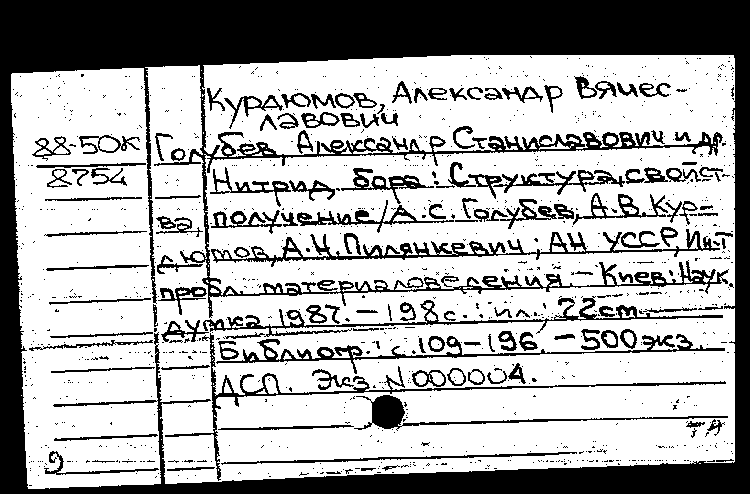 Курдюмов, Александр Вячес-
лавович
88-50К Голубев, Александр Станиславович и др.
8754 Нитрид бора: Структура, свойст-
ва, получение / А.С. Голубев, А.В. Кур-
дюмов, А.Н. Пилянкевич; АН УССР, Ин-т
пробл. материаловедения. - Киев: Наук.
думка, 1987. - 198 с.: ил.; 22 cm.
Библиогр.: с. 109-196. - 500 экз.
ДСП. Экз. N 000004.